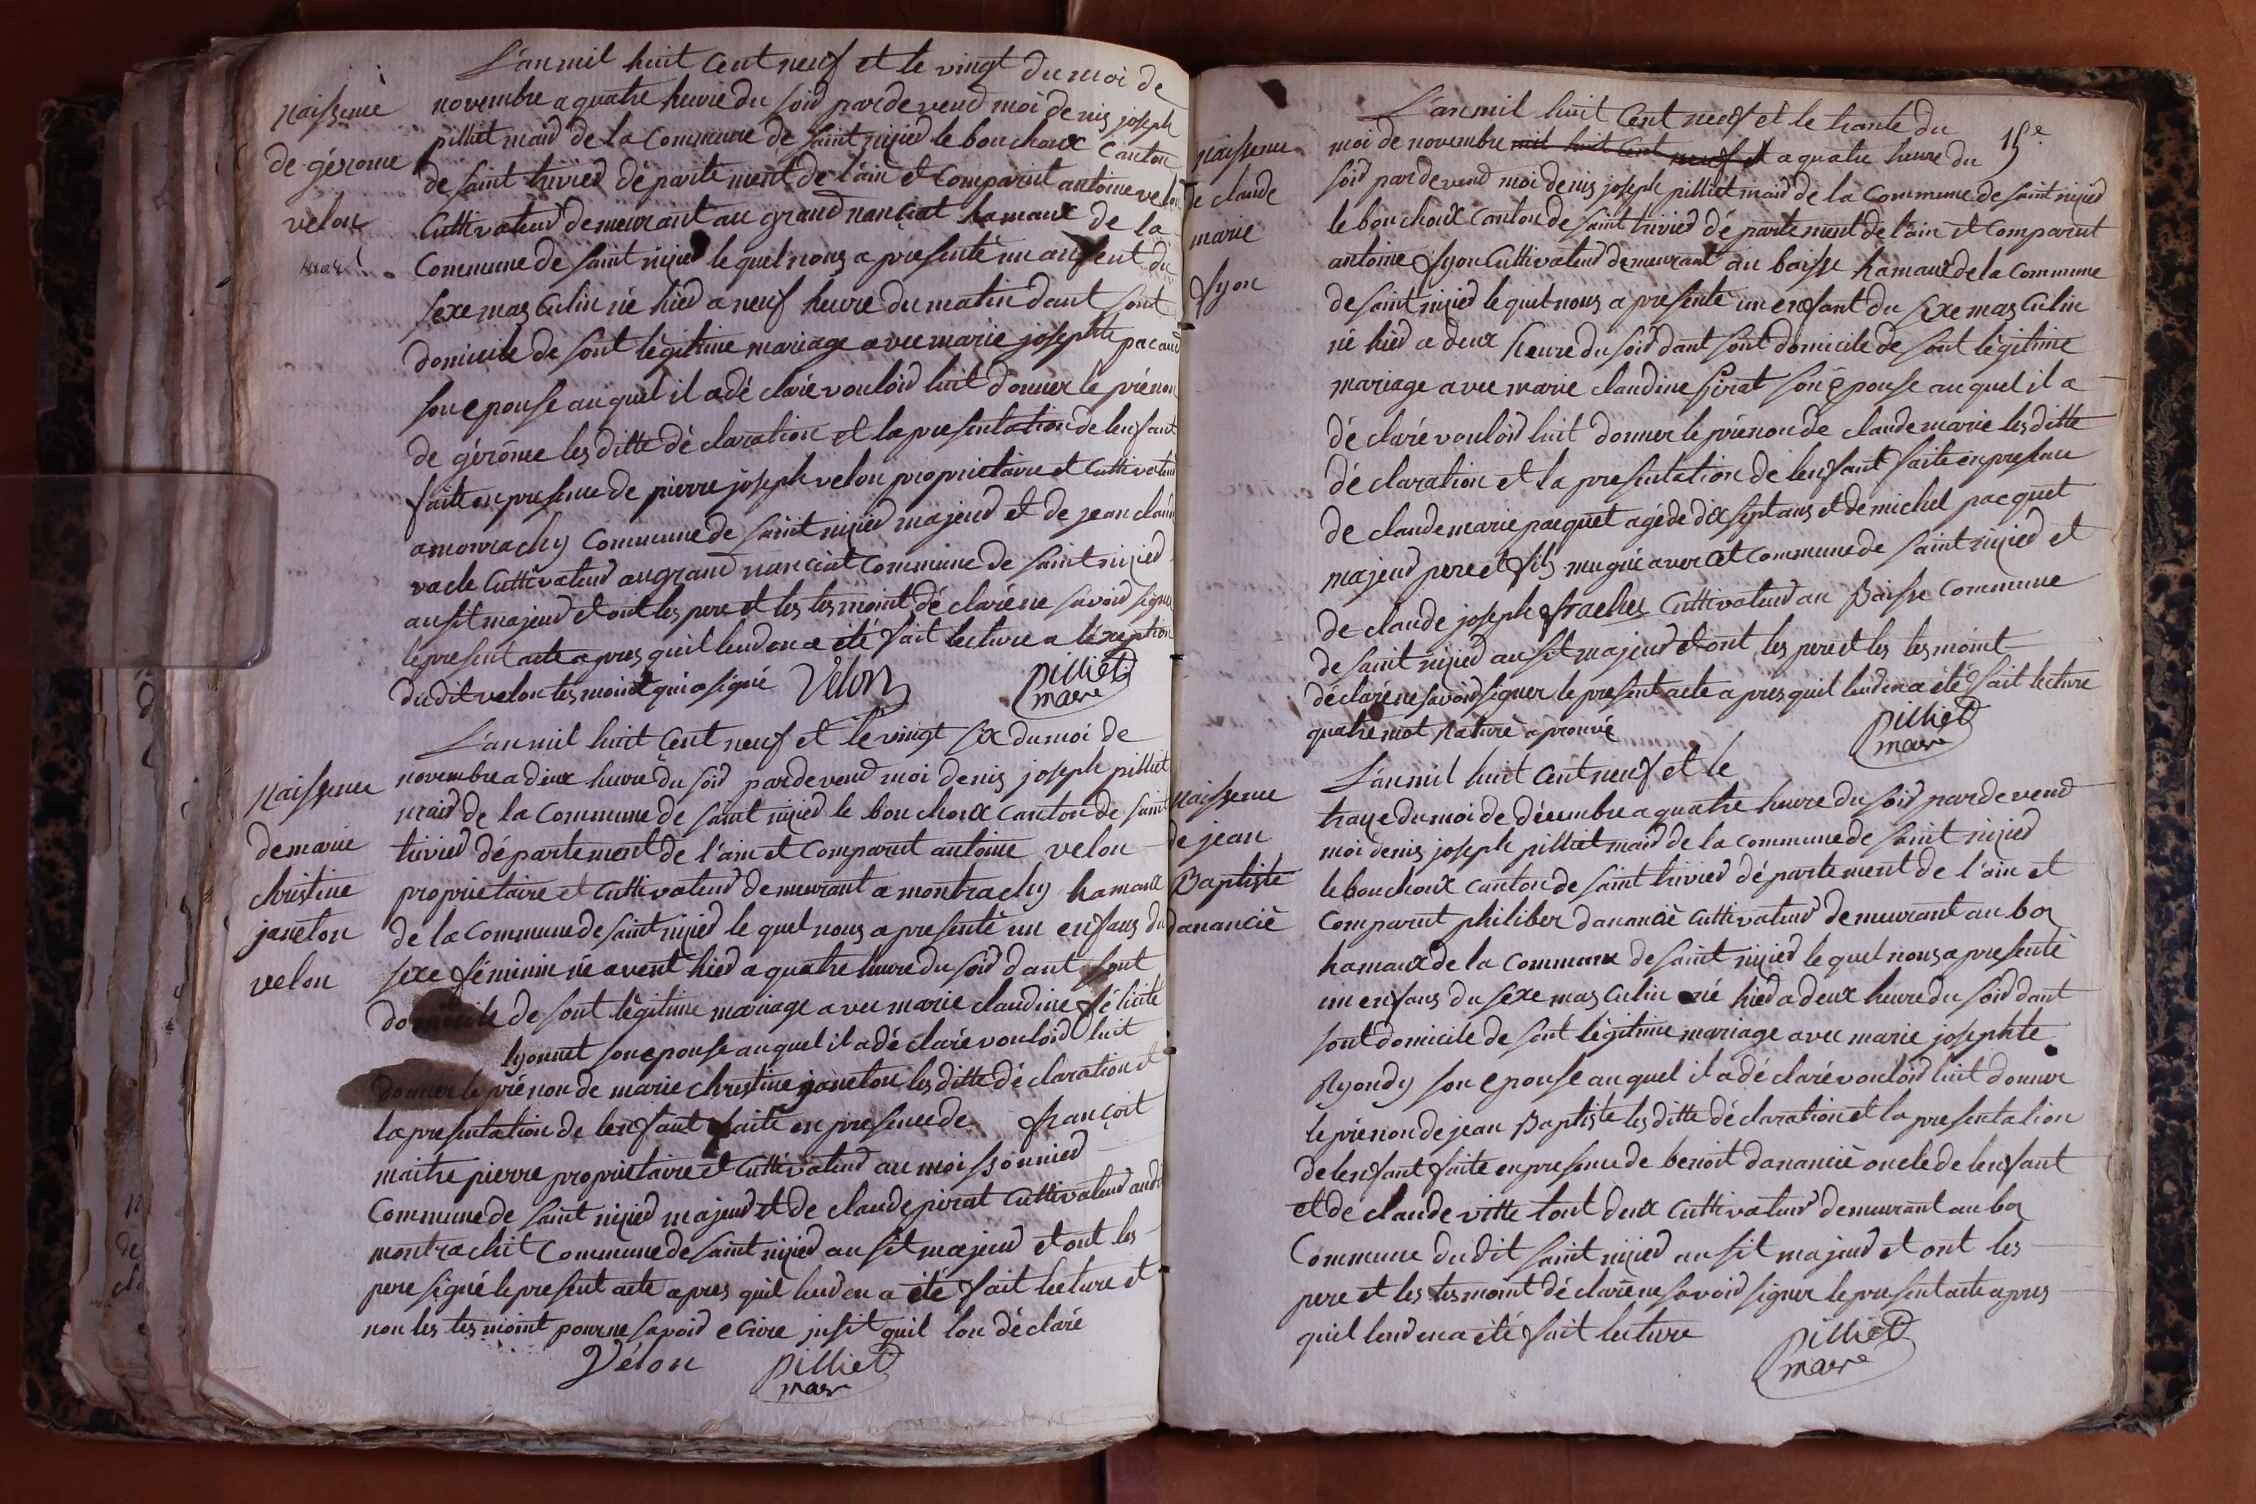 naissence
de gérome
velon
L'an mil huit cent neuf et le vingt du moi de
novembre a quatre heure du soid pardevend moi denis joseph
pilliet maid de la commune de saint nizied le bouchoux canton
de saint trivied département de l'ain et comparut antoine velon
cultivateud demeurant au grand nanciat hamaux de la
commune de saint nizied le quel nous a présenté un anfent du
sexe masculin né hied a neuf heure du matin dant sont
domicile de sont légitime mariage avec marie josephte pacaud
son epouse au quel il a dé claré vouloid luit donner le prénon
de gérome les ditte dé claration et la presentation de lenfant
faite en presence de pierre joseph velon proprietaire et cultivateud
a monrachy commune de saint nizied majeud et de jean claude
vacle cultivateud au grand nanciat commune de saint nizied
ausit majeud et ont les pere et les tesmoint dé claré ne savoid signer
le present acte apres quil leud en a été fait lecture a léxeption
du dit velon tesmoint qui a signé Vélon pilliet
maire
naissence
de marie
christine
janeton
velon
L'an mil huit cent neuf et le vingt six du moi de
novembre a deux heure du soid pardevend moi denis joseph pilliet
maid de la commune de saint nizied le bouchoux canton de saint
trivied département de l'ain et comparut antoine velon
proprietaire et cultivateud demeurant a montrachy hamaux
de la commune de saint nizied le quel nous a presenté un enfans du
sexe féminin né avent hied a quatre heure du soid dant sont
domicile de sont légitime mariage avec marie claudine félicité
lyonnet son epouse au quel il a dé claré vouloid luit
donner le prénon de marie christine janeton les ditte dé claration et
la presentation de lenfant faite en presence de françoit
maitre pierre proprietaire et cultivateud au moissonnied
commune de saint nizied majeud et de claude pirat cultivateud audit
montrachit commune de saint nizied ausit majeud et ont les
pere signé le present acte apres quil leud en a été fait lecture et
non les tesmoint pour ne savoid ecrire insit quil lon déclaré
Vélon pilliet
maire
15e
naissence
de claude
marie
syon
L'an mil huit cent neuf et le trante du
moi de novembre mil huit cent neuf et a quatre heure du
soid pardevend moi denis joseph pilliet maid de la commune de saint nizied
le bouchoux canton de saint trivied dé partement de l'ain et comparut
antoine syon cultivateud demeurant au baisse hamaux de la commune
de saint nizied le quel nous a presenté un enfant du sexe masculin
né hied a deux heure du soid dant sont domicile de sont légitime
mariage avec marie claudine pirat son épouse au quel il a
dé claré vouloid luit donner le prénon de claude marie les ditte
dé claration et la presentation de lenfant faite en presence
de claude marie pacquet agé de dix sept ans et de michel pacquet
majeud pere et fils commune de saint nizied et
de claude joseph cultivateud au Baisse commune
de saint nizied ausit majeud et ont les pere et les tesmoint
déclaré ne savoid signer le present acte apres quil leud en a été fait lecture
quatre mot rature aprouvé pilliet
maire
naissence
de jean
Baptiste
dananciè
L'an mil huit cent neuf et le
traize du moi de décembre a quatre heure du soid pardevend
moi denis joseph pilliet maid de la commune de saint nizied
le bouchoux canton de saint trivied département de l'ain et
comparut philiber dananciè cultivateud demeurant au boz
hamaux de la commune de saint nizied le quel nous a presenté
un enfans du sexe masculin né hied a deux heure du soid dant
sont domicile de sont légitime mariage avec marie josephte
Ryondy son epouse au quel il a dé claré vouloid luit donner
le prénon de jean Baptiste les ditte déclaration et la presentation
de lenfant faite en presence de benoit dananciè oncle de lenfant
et de claude vitte tout deux cultivateud demeurant au boz
commune du dit saint nizied ausit majeud et ont les
pere et les tesmoint dé claré ne savoid signer le present acte apres
quil leud en a été fait lecture pilliet
maire